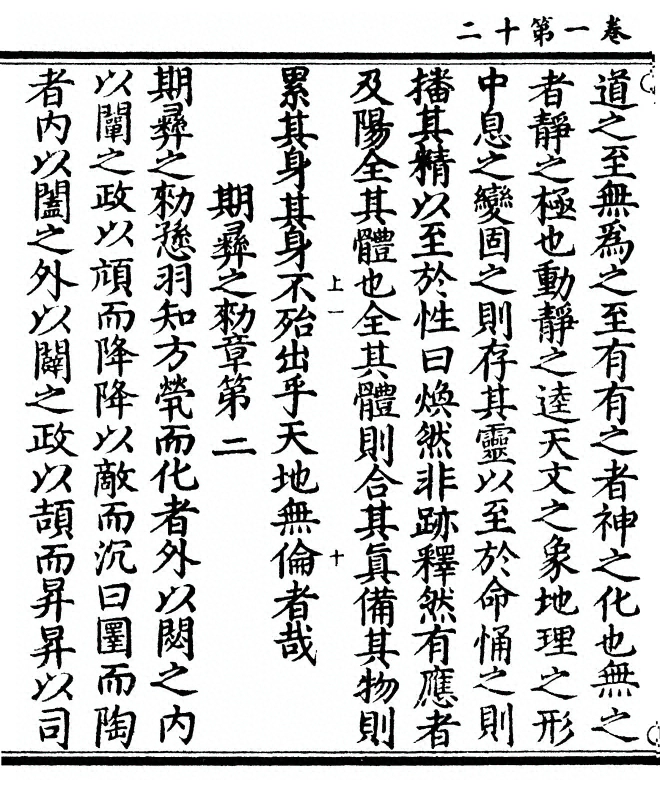 卷一第十二
道之至無為之至有有之者神之化也無之
者靜之極也動靜之逵天文之象地理之形
中息之變固之則存其靈以至於命悀之則
播其精以至於性曰煥然非跡釋然有應者
及陽全其體也全其體則合其真備其物則
上一
十
累其身其身不殆出乎天地無倫者哉
期彝之勑章第二
期彝之勑懸羽知方㷀而化者外以闋之內
以闡之政以頎而降降以敵而沉曰圛而陶
者內以闔之外以闢之政以頡而昇昇以司